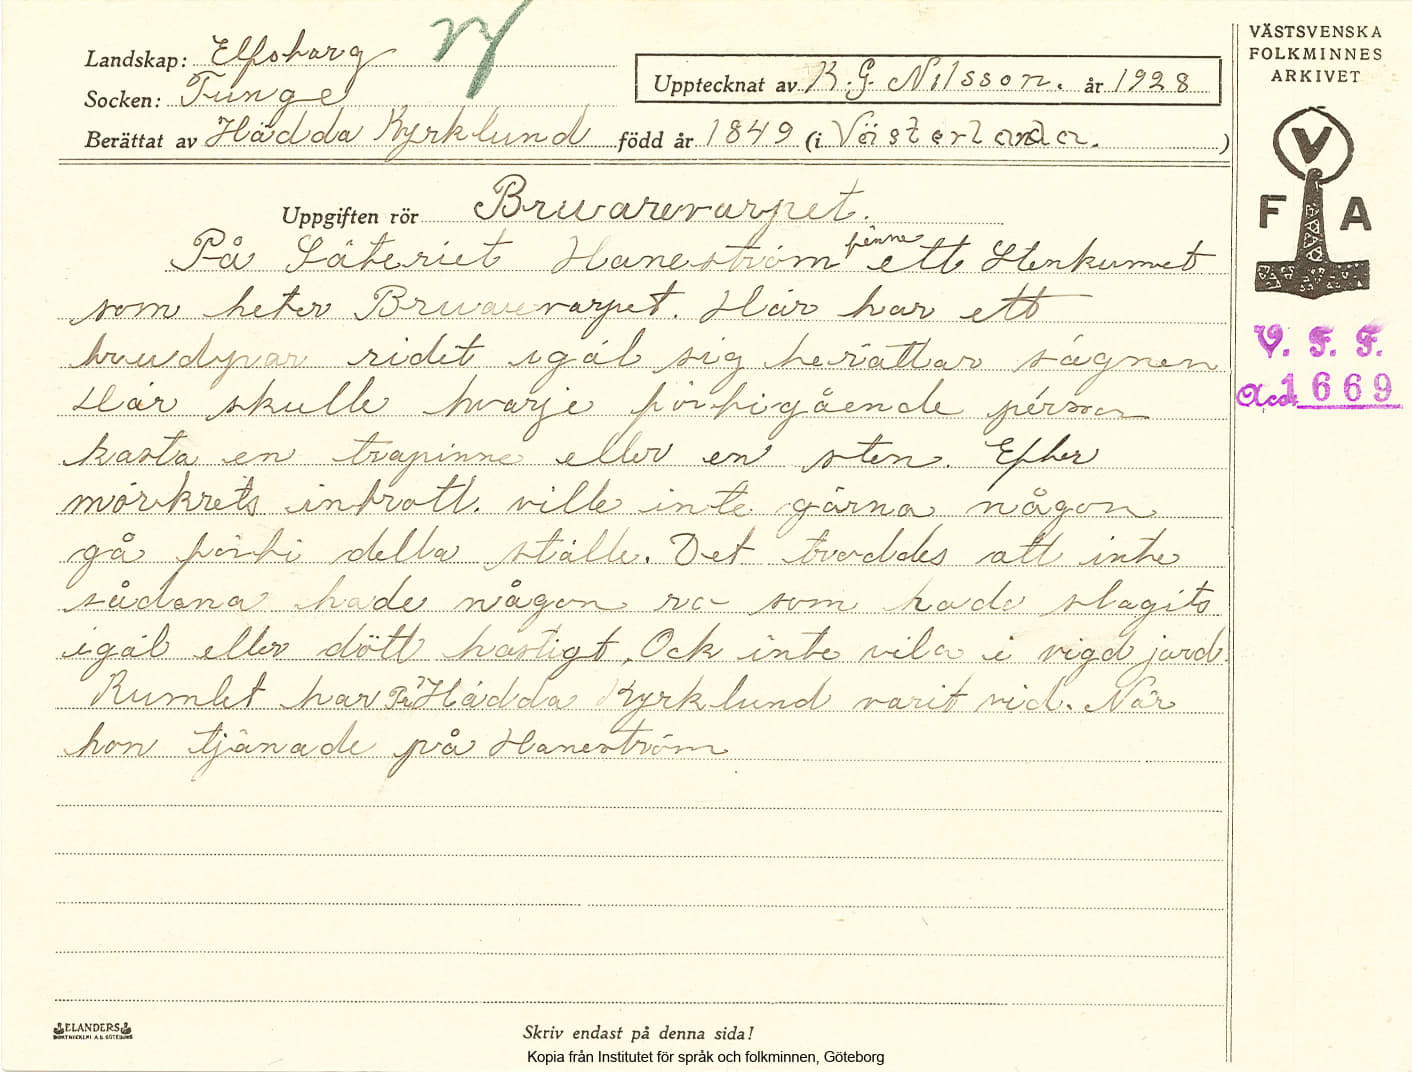 Landskap: Elfsborg
Socken: Tunge
Berättat av Hädda Kyrklund född år 1849 (i Västerlanda. )
Upptecknat av K. G. Nilsson. år 1928
VÄSTSVENSKA
FOLKMINNES
ARKIVET
V
F A
V. F. F.
Acc. 1669
Uppgiften rör Bruarevarpet.
På Säteriet Haneström finnes ett Stenkumel
som heter Bruarevarpet. Här har ett
brudpar ridit igäl sig berättar sägnen
Här skulle hvarje förbigående person
kasta en trapinne eller en sten. Efter
mörkrets inbrott. ville inte gärna någon
gå förbi detta ställe. Det troddes att inte
sådana hade någon ro som hade slagits
igäl eller dött hastigt. Ock inte vila i vigd jord.
Kumlet har Hädda Kyrklund varit vid. När
hon tjänade på Haneström
ELANDERS
BOKTRYCKERI A.B. GÖTEBORG
Skriv endast på denna sida!
Kopia från Institutet för språk och folkminnen, Göteborg